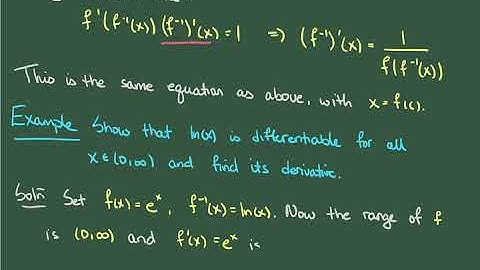 f'(f⁻¹(x)) (f⁻¹)'(x) = 1 ⇒ (f⁻¹)'(x) = 1 / f(f⁻¹(x))
This is the same equation as above, with x = f(c).
Example Show that ln(x) is differentiable for all
x ∈ (0,∞) and find its derivative.
Sol'n Set f(x) = eˣ, f⁻¹(x) = ln(x). Now the range of f
is (0,∞) and f'(x) = eˣ is